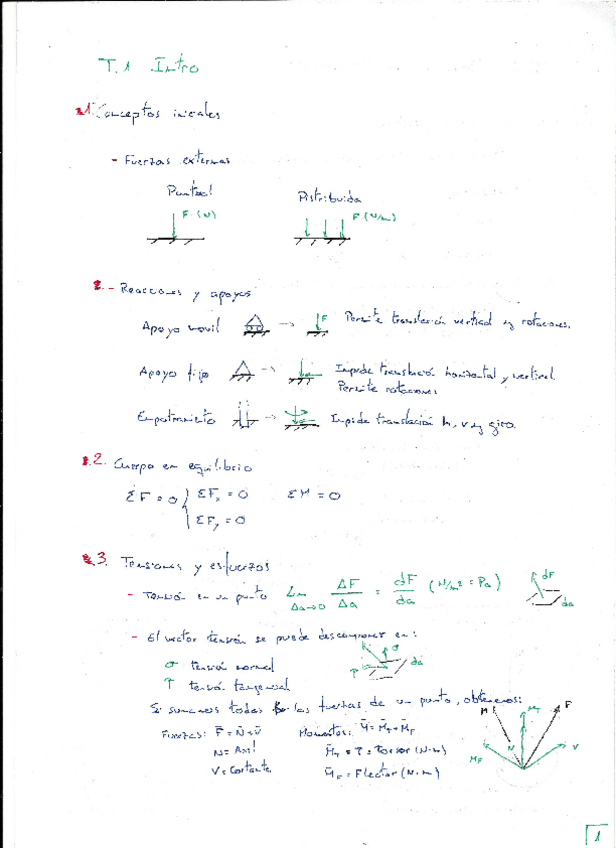 T.1 Intro
1. Conceptos iniciales
- Fuerzas externas
Puntual
Distribuida
F (N)
F (N/m)
2. - Reacciones y apoyos
Apoyo móvil → F Permite translación vertical y rotaciones.
Apoyo fijo → Impide translación horizontal y vertical
Permite rotaciones
Empotramiento → Impide translación h, v y giro.
2. Cuerpo en equilibrio
ΣF = 0 { ΣFx = 0 ΣM = 0
ΣFy = 0
3. Tensiones y esfuerzos
- Tensión en un punto Lim Δa→0 ΔF/Δa = dF/da (N/m² = Pa) dF
da
- El vector tensión se puede descomponer en:
σ tensión normal
τ tensión tangencial
σ τ da
Si sumamos todas las fuerzas de un punto, obtenemos:
Fuerzas: F̄ = N̄ + V̄ Momentos: M̄ = M̄T + M̄F
N = Axil M̄T = T = Torsor (N·m)
V = Cortante M̄F = Flector (N·m)
M MT F
MF N V
1